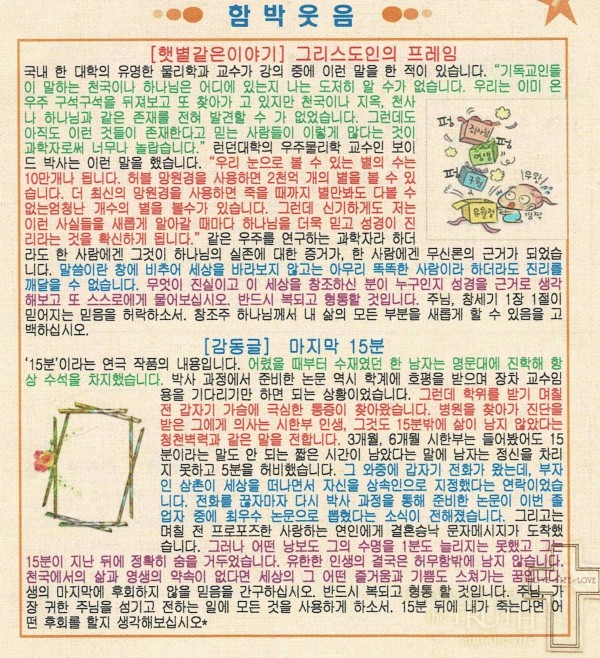 함박웃음
[햇볕같은이야기] 그리스도인의 프레임
국내 한 대학의 유명한 물리학과 교수가 강의 중에 이런 말을 한 적이 있습니다. “기독교인들
이 말하는 천국이나 하나님은 어디에 있는지 나는 도저히 알 수가 없습니다. 우리는 이미 온
우주 구석구석을 뒤져보고 또 찾아가 고 있지만 천국이나 지옥, 천사
나 하나님과 같은 존재를 전혀 발견할 수 가 없었습니다. 그런데도
아직도 이런 것들이 존재한다고 믿는 사람들이 이렇게 많다는 것이
과학자로써 너무나 놀랍습니다.” 런던대학의 우주물리학 교수인 보이
드 박사는 이런 말을 했습니다. “우리 눈으로 볼 수 있는 별의 수는
10만개나 됩니다. 허블 망원경을 사용하면 2천억 개의 별을 볼 수 있
습니다. 더 최신의 망원경을 사용하면 죽을 때까지 별만봐도 다볼 수
없는엄청난 개수의 별을 볼수가 있습니다. 그런데 신기하게도 저는
이런 사실들을 새롭게 알아갈 때마다 하나님을 더욱 믿고 성경이 진
리라는 것을 확신하게 됩니다.” 같은 우주를 연구하는 과학자라 하더
라도 한 사람에겐 그것이 하나님의 실존에 대한 증거가, 한 사람에겐 무신론의 근거가 되었습니
다. 말씀이란 창에 비추어 세상을 바라보지 않고는 아무리 똑똑한 사람이라 하더라도 진리를
깨달을 수 없습니다. 무엇이 진실이고 이 세상을 창조하신 분이 누구인지 성경을 근거로 생각
해보고 또 스스로에게 물어보십시오. 반드시 복되고 형통할 것입니다. 주님, 창세기 1장 1절이
믿어지는 믿음을 허락하소서. 창조주 하나님께서 내 삶의 모든 부분을 새롭게 할 수 있음을 고
백하십시오.
펑
집사직
펑
명생
펑
구원
유원정
우왕
깜짝
[감동글] 마지막 15분
‘15분’이라는 연극 작품의 내용입니다. 어렸을 때부터 수재였던 한 남자는 명문대에 진학해 항
상 수석을 차지했습니다. 박사 과정에서 준비한 논문 역시 학계에 호평을 받으며 장차 교수임
용을 기다리기만 하면 되는 상황이었습니다. 그런데 학위를 받기 며칠
전 갑자기 가슴에 극심한 통증이 찾아왔습니다. 병원을 찾아가 진단을
받은 그에게 의사는 시한부 인생, 그것도 15분밖에 삶이 남지 않았다는
청천벽력과 같은 말을 전합니다. 3개월, 6개월 시한부는 들어봤어도 15
분이라는 말도 안 되는 짧은 시간이 남았다는 말에 남자는 정신을 차리
지 못하고 5분을 허비했습니다. 그 와중에 갑자기 전화가 왔는데, 부자
인 삼촌이 세상을 떠나면서 자신을 상속인으로 지정했다는 연락이었습
니다. 전화를 끊자마자 다시 박사 과정을 통해 준비한 논문이 이번 졸
업자 중에 최우수 논문으로 뽑혔다는 소식이 전해졌습니다. 그리고는
며칠 전 프로포즈한 사랑하는 연인에게 결혼승낙 문자메시지가 도착했
습니다. 그러나 어떤 낭보도 그의 수명을 1분도 늘리지는 못했고 그는
15분이 지난 뒤에 정확히 숨을 거두었습니다. 유한한 인생의 결국은 허무함밖에 남지 않습니다.
천국에서의 삶과 영생의 약속이 없다면 세상의 그 어떤 즐거움과 기쁨도 스쳐가는 꿈입니다.
생의 마지막에 후회하지 않을 믿음을 간구하십시오. 반드시 복되고 형통 할 것입니다. 주님, 가
장 귀한 주님을 섬기고 전하는 일에 모든 것을 사용하게 하소서. 15분 뒤에 내가 죽는다면 어
떤 후회를 할지 생각해보십시오*
LOVE
TRUTH